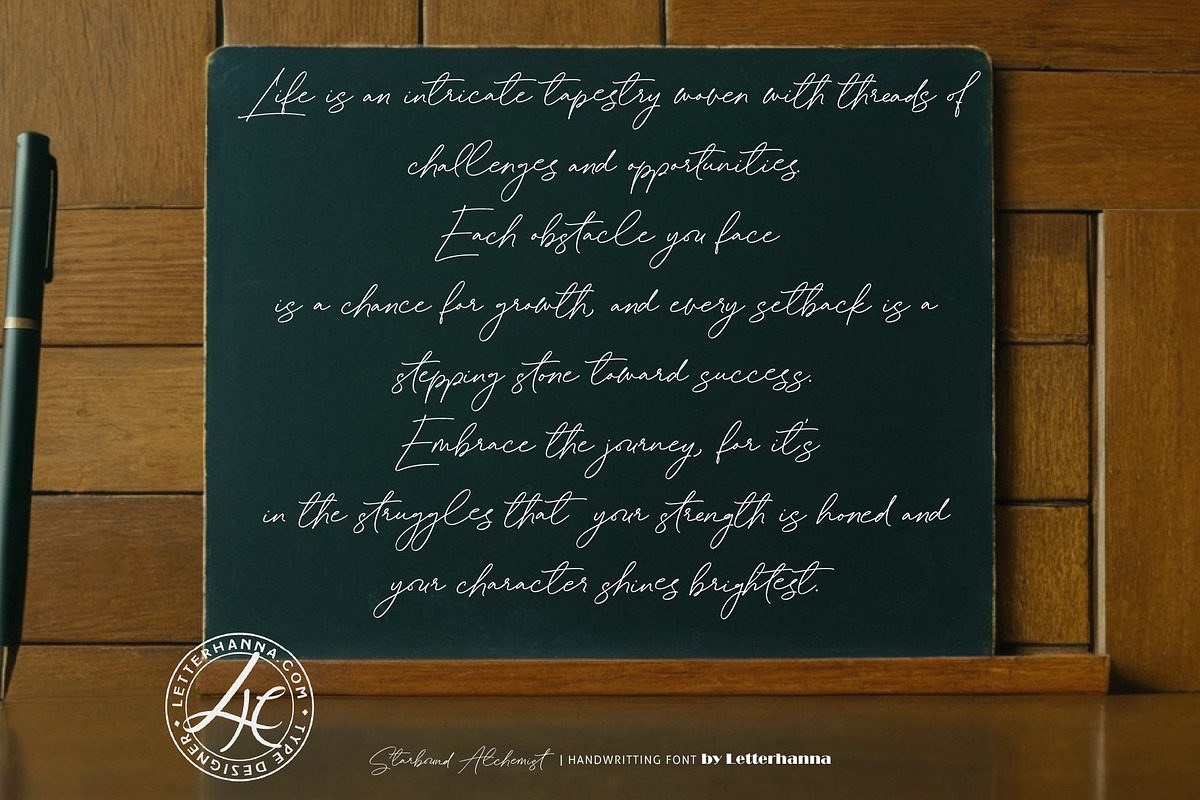 Life is an intricate tapestry woven with threads of
challenges and opportunities.
Each obstacle you face
is a chance for growth, and every setback is a
stepping stone toward success.
Embrace the journey, for it's
in the struggles that your strength is honed and
your character shines brightest.
LETTERHANNA.COM
LH
TYPE DESIGNER
Starbound Alchemist | HANDWRITTING FONT by Letterhanna